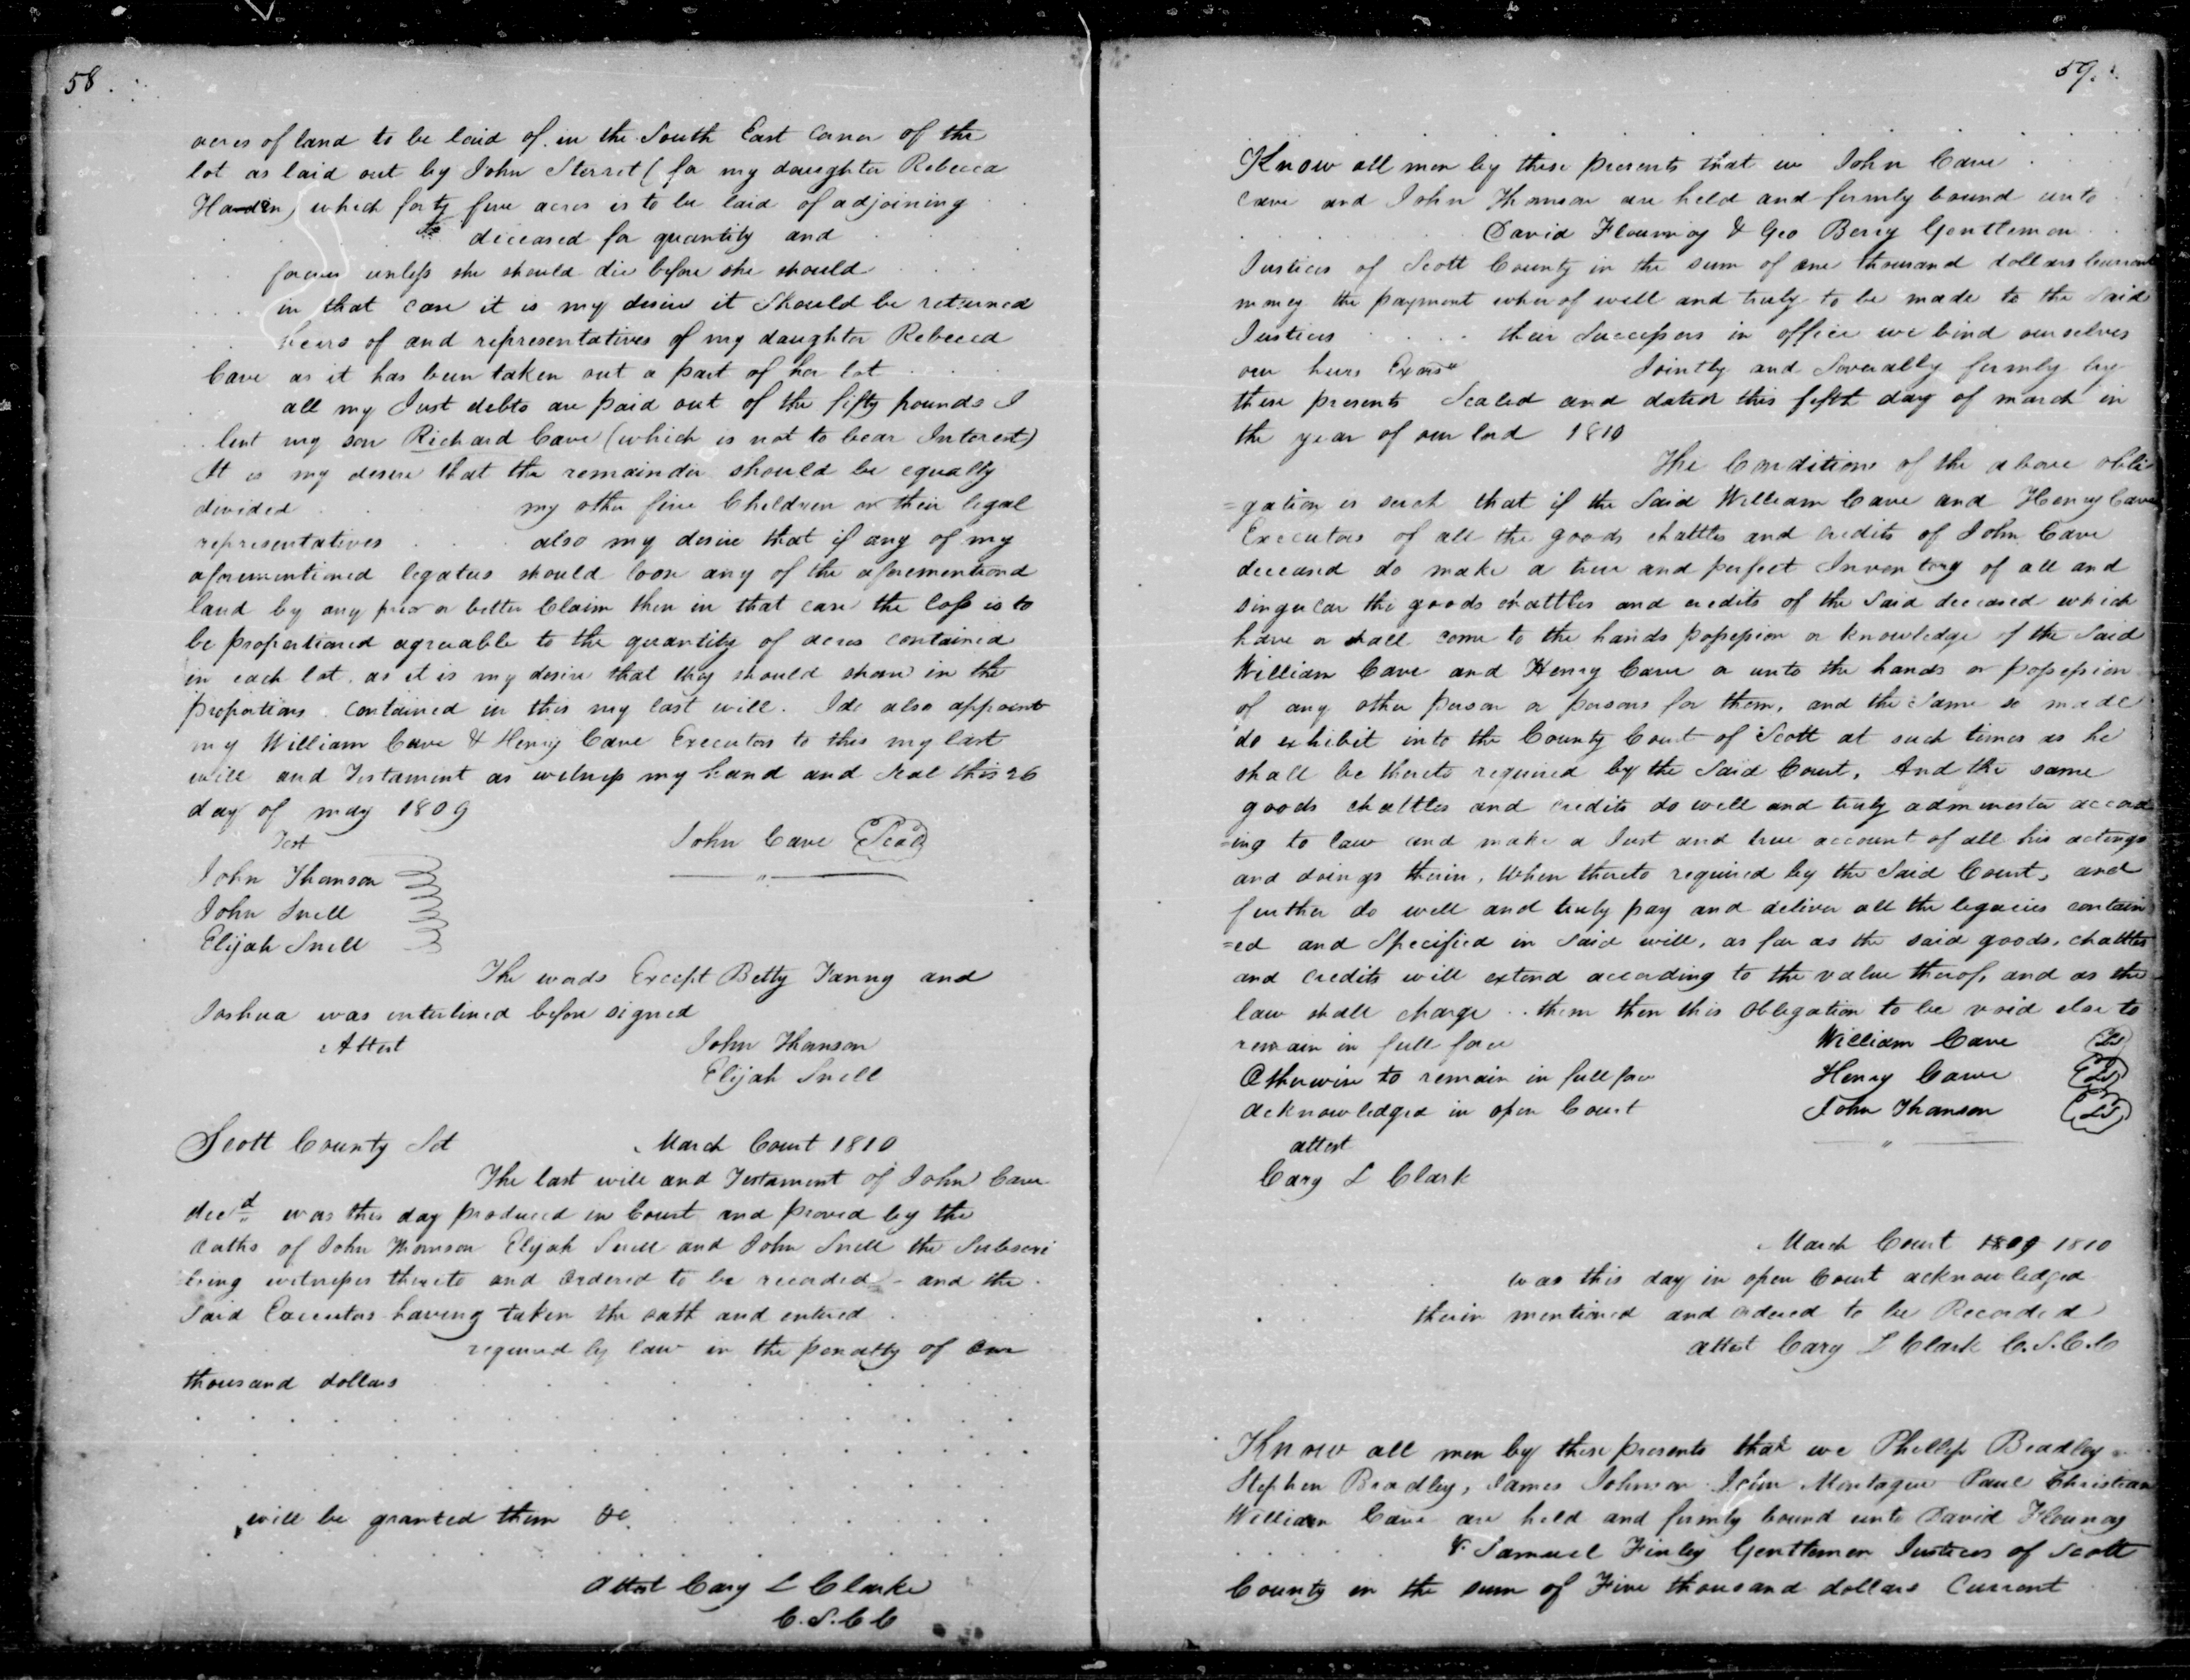 58.
acres of land to be laid of in the South East Corner of the
lot as laid out by John Sterret (for my daughter Rebecca
which forty five acres is to be laid of adjoining
deceased for quantity and
forever unless she should die before she should
in that case it is my desire it Should be returned
heirs of and representatives of my daughter Rebecca
Cave as it has been taken out a part of her lot
all my Just debts are paid out of the fifty pounds I
lent my son Richard Cave (which is not to bear Interest)
It is my desire that the remainder should be equally
divided my other five Children or their legal
representatives also my desire that if any of my
aforementioned legatees should loose any of the aforementiond
land by any prior or better Claim then in that case the loss is to
be proportioned agreeable to the quantity of acres contained
in each lot. as it is my desire that they should share in the
proportions contained in this my last will. I do also appoint
my William Cave & Henry Cave Executors to this my last
will and Testament as witness my hand and Seal this 26
day of may 1809
Test
John Cave Seal
John Thomson
John Snell
Elijah Snell
The words Except Betty Fanny and
Joshua was interlined before signed
Attest John Thomson
Elijah Snell
Scott County Sct March Court 1810
The last will and Testament of John Cave
decd was this day produced in Court and proved by the
oaths of John Thomson Elijah Snell and John Snell the Subscri
bing witnesses thereto and ordered to be recorded - and the
Said Executors having taken the oath and entered
required by law in the penalty of one
thousand dollars
will be granted them &c
Attest Cary L Clarke
C.S.C.C
59.
Know all men by these presents that we John Cave
Cave and John Thomson are held and firmly bound unto
David Flournoy & Geo Berry Gentlemen
Justices of Scott County in the sum of one thousand dollars Current
money the payment wherof well and truly to be made to the Said
Justices their Successors in office we bind ourselves
our heirs Jointly and Severally firmly by
these presents Sealed and dated this fifth day of march in
the year of our lord 1810
The Conditions of the above obli
=gation is such that if the Said William Cave and Henry Cave
Executors of all the goods chattles and credits of John Cave
deceased do make a true and perfect Inventory of all and
singular the goods chattles and credits of the Said deceased which
have or shall come to the hands possession or knowledge of the Said
William Cave and Henry Cave or unto the hands or possession
of any other person or persons for them, and the Same so made
do exhibit into the County Court of Scott at such times as he
shall be thereto required by the Said Court, And the same
goods chattles and credits do well and truly administer accord
=ing to law and make a Just and true account of all his actings
and doings therein, When thereto required by the Said Court, and
further do well and truly pay and deliver all the legacies contain
=ed and Specified in Said will, as far as the said goods, chattles
and credits will extend according to the value therof, and as the
law shall charge them then this obligation to be void else to
remain in full force William Cave LS
Otherwise to remain in full force Henry Cave LS
acknowledged in open Court John Thomson LS
attest
Cary L Clark
March Court 1809 1810
was this day in open Court acknowledged
therin mentioned and ordered to be Recorded
attest Cary L Clark C.S.C.C
Know all men by these presents that we Phillip Bradley
Stephen Bradley, James Johnson John Montague Paul Christian
William Cave are held and firmly bound unto David Flournoy
& Samuel Finley Gentlemen Justices of Scott
County in the sum of Five thousand dollars Current